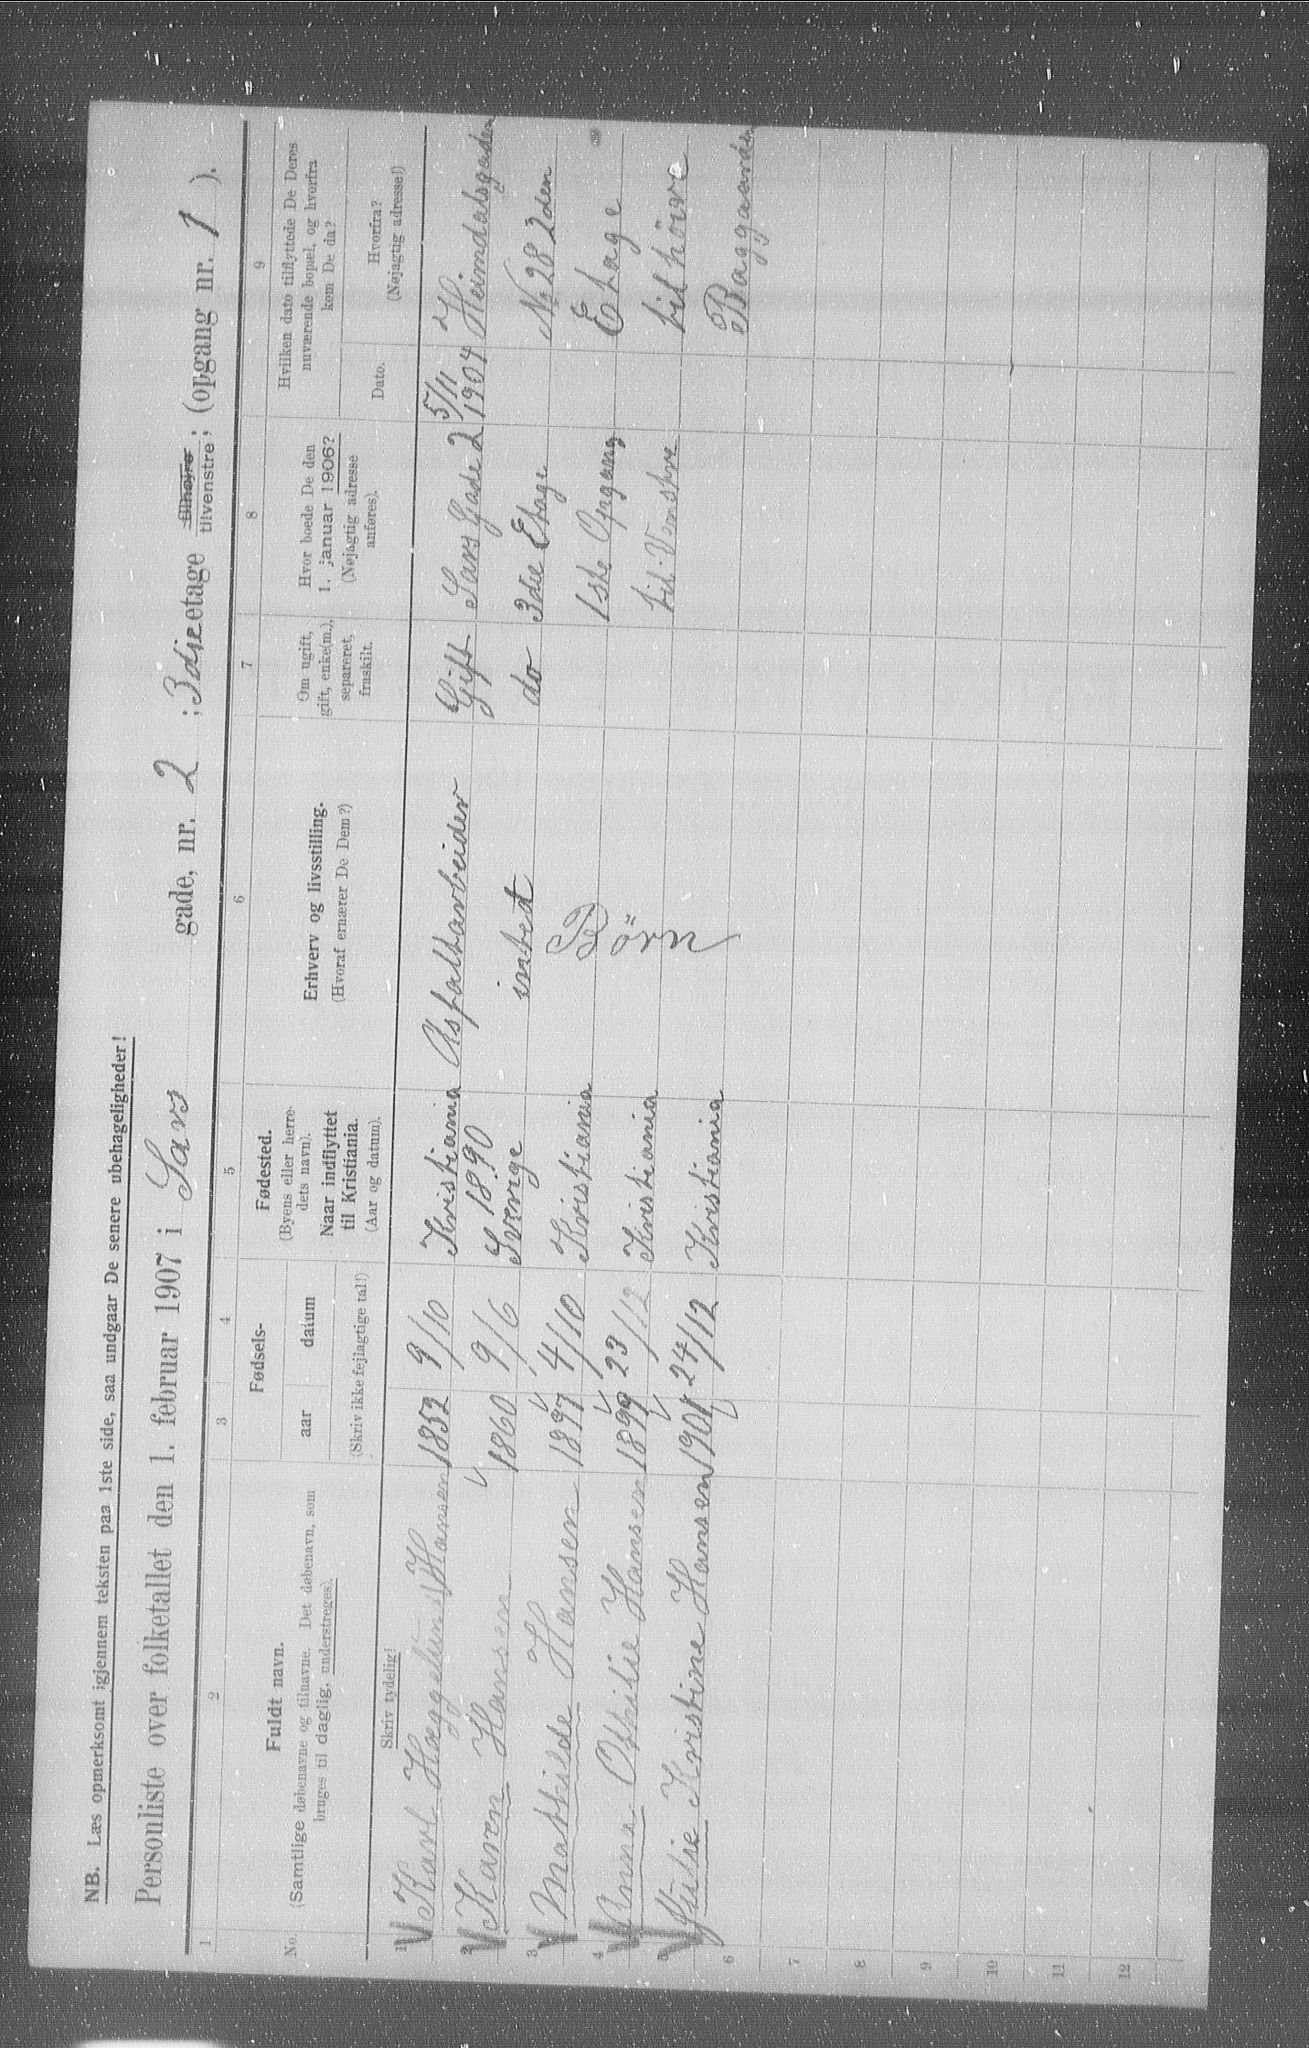 NB. Læs opmerksomt igjennem teksten paa 1ste side, saa undgaar De senere ubehageligheder!
Personliste over folketallet den 1. februar 1907 i Lars gade, nr. 2 ; 3die etage tilhøjre tilvenstre ; (opgang nr. 1 ).
1 2 3 4 5 6 7 8 9
No.
Fuldt navn.
(Samtlige døbenavne og tilnavne. Det døbenavn, som
bruges til daglig, understreges).
Skriv tydelig!
Fødsels-
aar datum
(Skriv ikke fejlagtige tal!)
Fødested.
(Byens eller herre-
dets navn).
Naar indflyttet
til Kristiania.
(Aar og datum).
Erhverv og livsstilling.
(Hvoraf ernærer De Dem?)
Om ugift,
gift, enke(m.),
separeret,
fraskilt.
Hvor boede De den
1. januar 1906?
(Nøjagtig adresse
anføres).
Hvilken dato tilflyttede De Deres
nuværende bopæl, og hvorfra
kom De da?
Dato.
Hvorfra?
(Nøjagtig adresse!)
1 Karl Hansen 1852 9/10 Kristiania Asfaltarbeider Gift Lars Gade 2 5/11 1904 Heimdalsgaden
2 Karen Hansen 1860 9/6 1890 Sverige intet do 3die Etage No 28 2den
3 Mathilde Hansen 1897 4/10 Kristiania Børn 1ste Opgang Etage
4 Anna Othilie Hansen 1899 23/12 Kristiania til Venstre til höire
5 Julie Kristine Hansen 1901 24/12 Kristiania Baggaarden
6
7
8
9
10
11
12